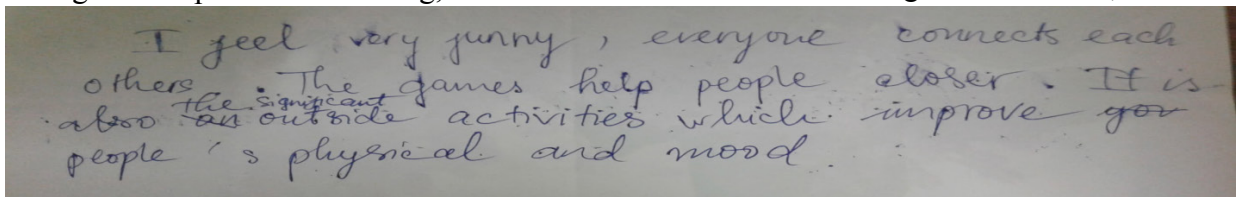 I feel very funny, everyone connects each
others. The games help people closer. It is
the significant
also an outside activities which improve you
people's physical and mood.